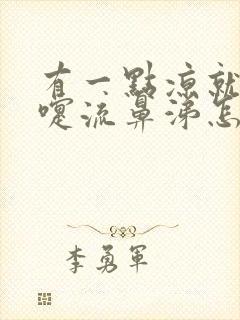 有一點涼就
嚏流鼻涕怎
李勇軍